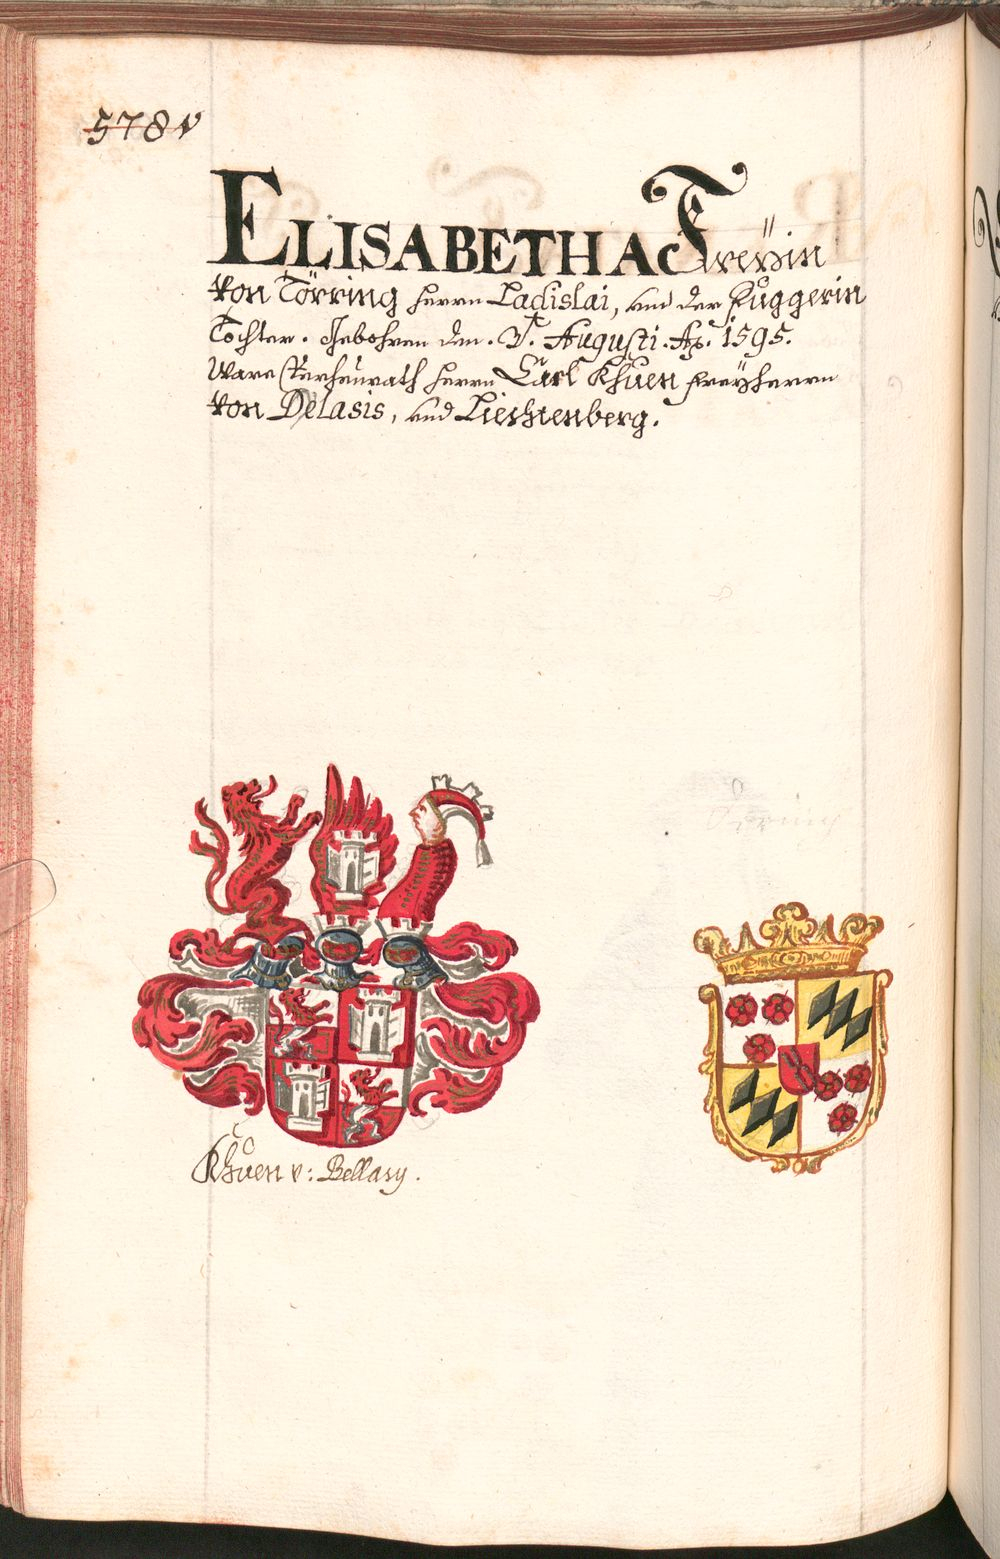 578 v
ELISABETHA Freÿin
Von Törring Herrn Ladislai, und der Fuggerin
Tochter. Gebohren den. 3. Augusti. Aō. 1595.
Ware Verheurath Herrn Carl Khuen Freÿherrn
Von Belasis, und Liechtenberg.
Khuen v: Bellasy.